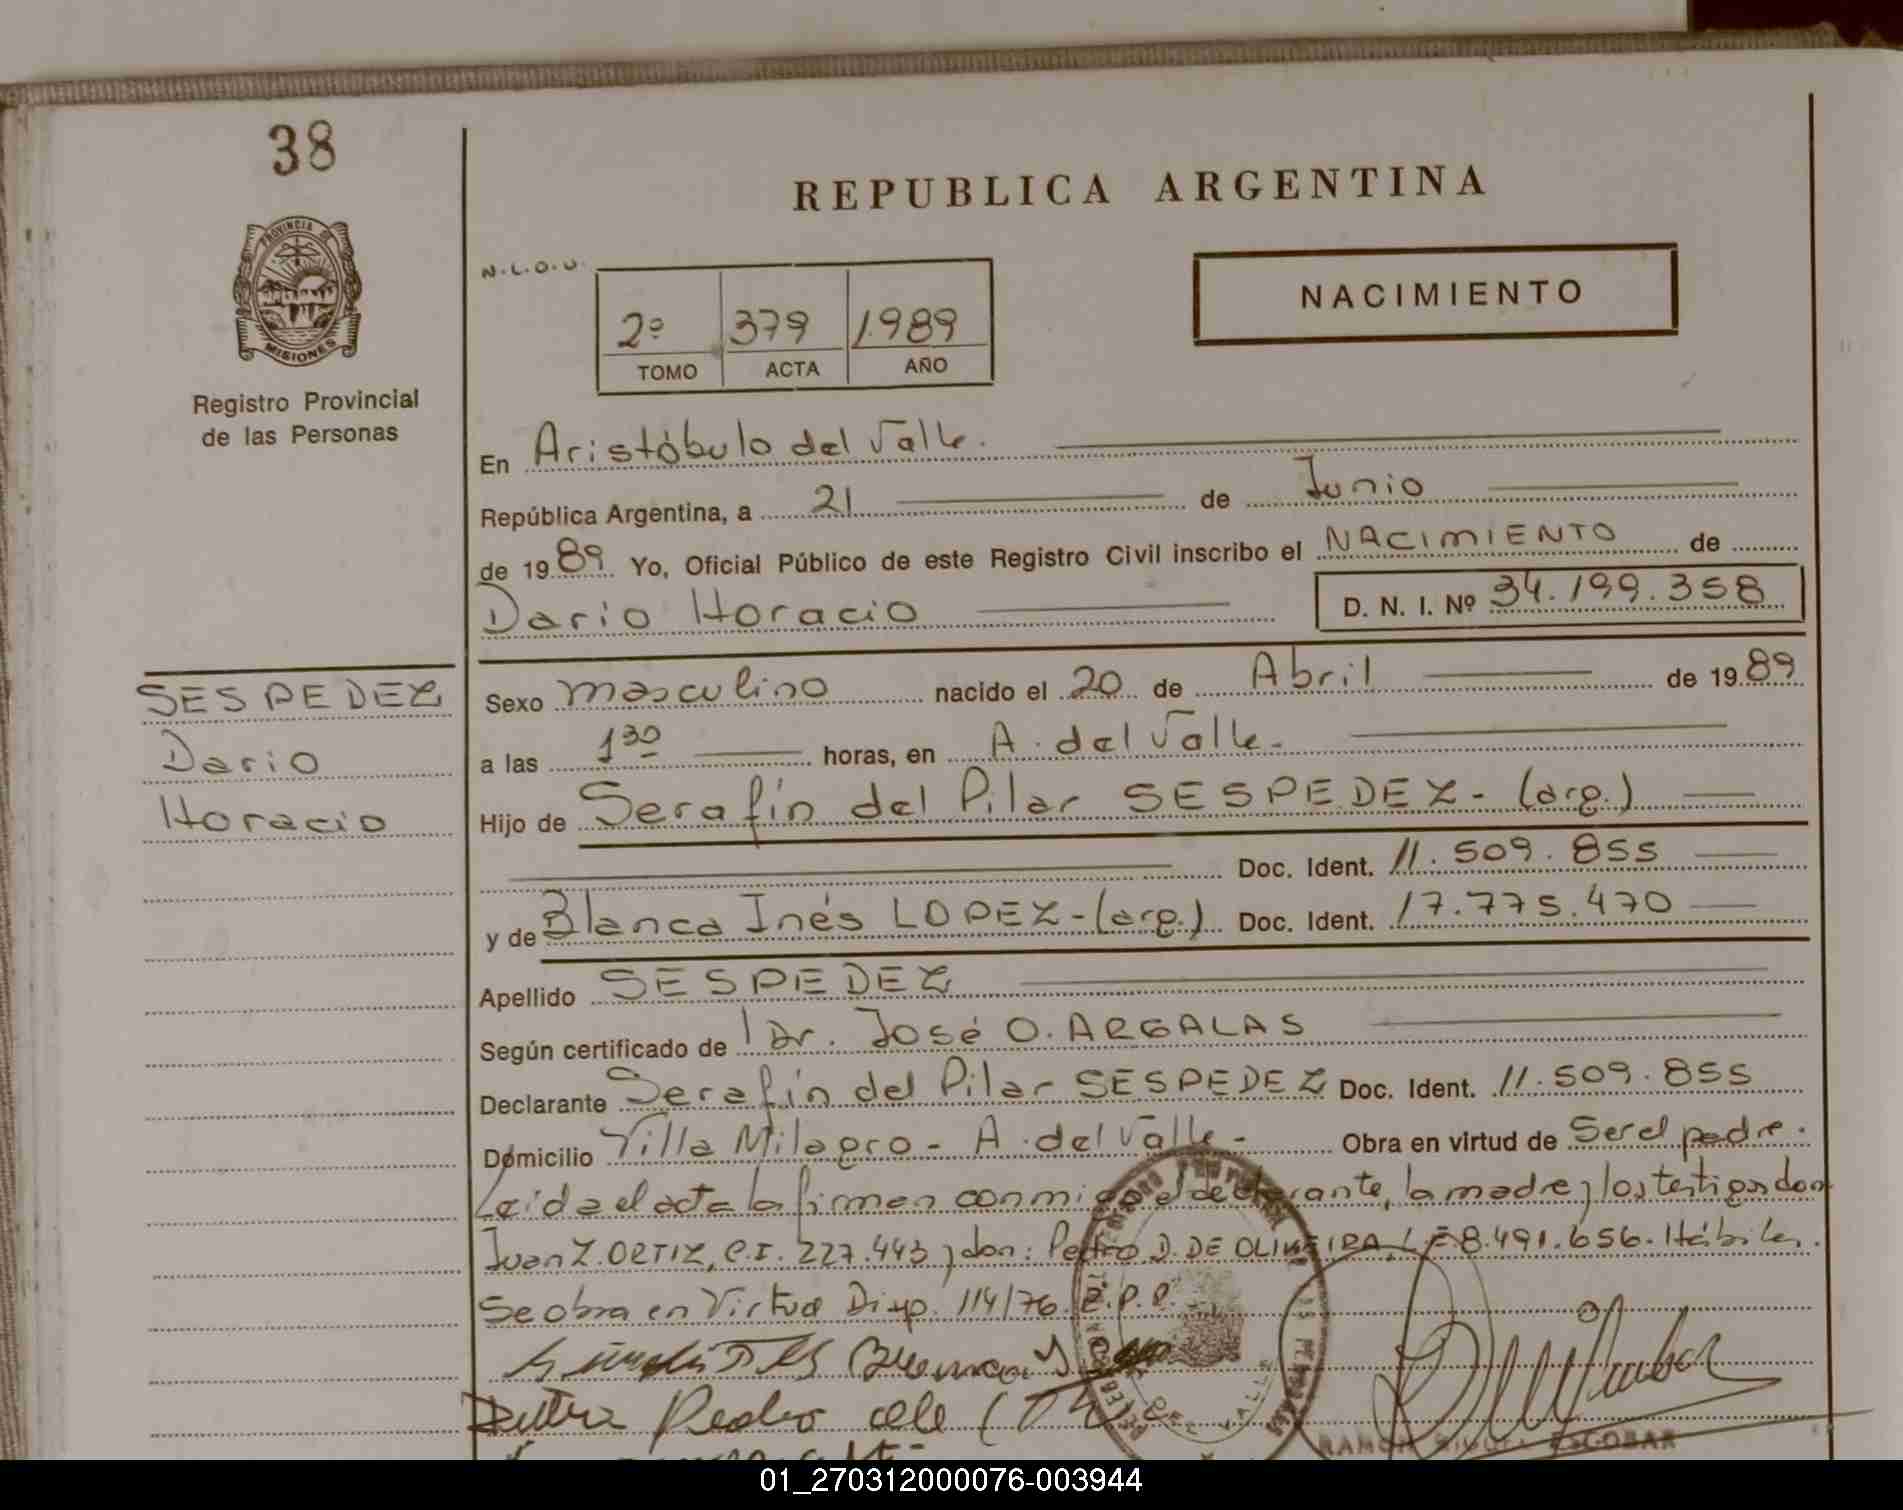 38
REPUBLICA ARGENTINA
PROVINCIA DE
MISIONES
Registro Provincial
de las Personas
N.L.O.U.
NACIMIENTO
2º 379 1.989
TOMO ACTA AÑO
En Aristóbulo del Valle.
República Argentina, a 21 de Junio
de 1989 Yo, Oficial Público de este Registro Civil inscribo el NACIMIENTO de
Dario Horacio D. N. I. Nº 34.199.358
SESPEDEZ
Dario
Horacio
Sexo masculino nacido el 20 de Abril de 1989
a las 1 30 horas, en A. del Valle.
Hijo de Serafín del Pilar SESPEDEZ - (arg.)
Doc. Ident. 11.509.855
y de Blanca Inés LOPEZ - (arg.) Doc. Ident. 17.775.470
Apellido SESPEDEZ
Según certificado de Dr. José O. ARGALAS
Declarante Serafín del Pilar SESPEDEZ Doc. Ident. 11.509.855
Domicilio Villa Milagro - A. del Valle - Obra en virtud de Ser el padre.
Leida el acta la firman conmigo el declarante, la madre y los testigos don
Juan Z. ORTIZ, C.I. 227.443 y don: Pedro D. DE OLIVEIRA, L.E 8.491.656. Hábiles.
Se obra en Virtud Disp. 114/76. R.P.P.
Pedro
RAMON MIGUEL ESCOBAR
01_270312000076-003944